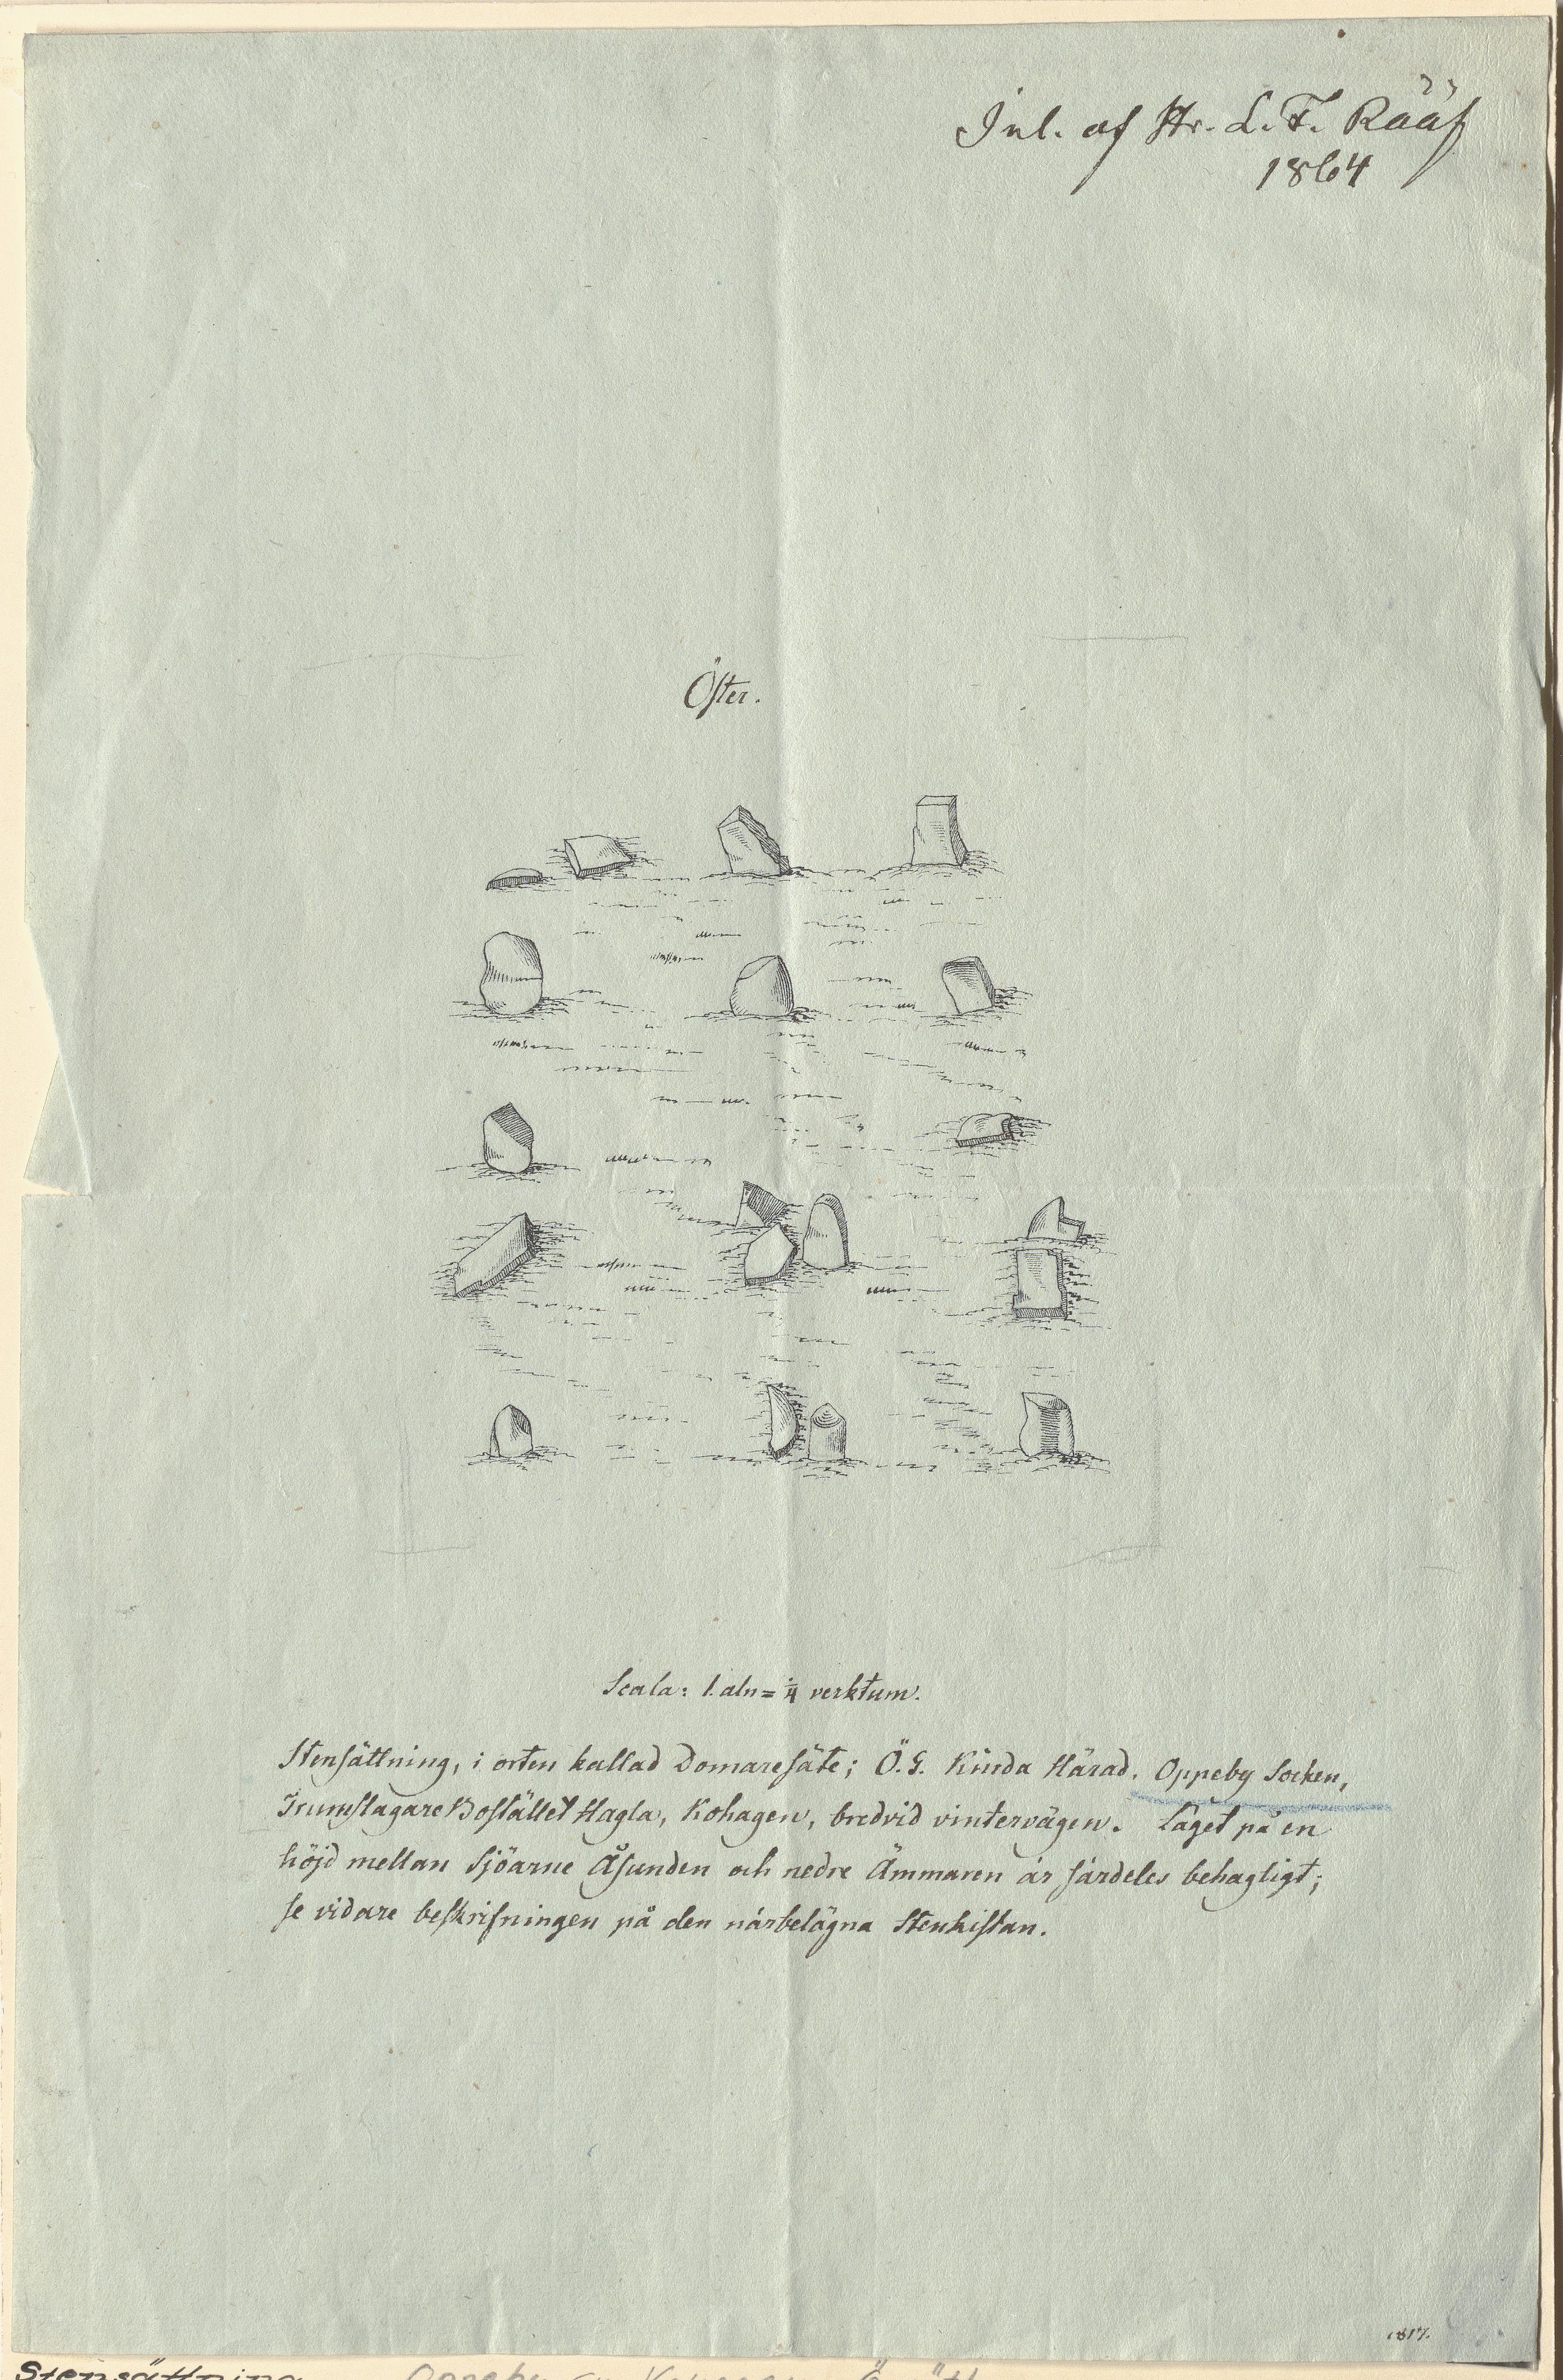 Inl. af Hr. L. F. Rääf
1864
Öster.
Scala: 1. aln = 1/4 verktum.
Stensättning, i orten kallad Domaresäte; Ö.G. Kinda Härad. Oppeby Socken,
Trumslagare Bostället Hagla, Kohagen, bredvid vintervägen. Läget på en
höjd mellan Sjöarne Åsunden och nedre Ämmaren är särdeles behagligt;
se vidare beskrifningen på den närbelägna Stenkistan.
1817.
Stensättning